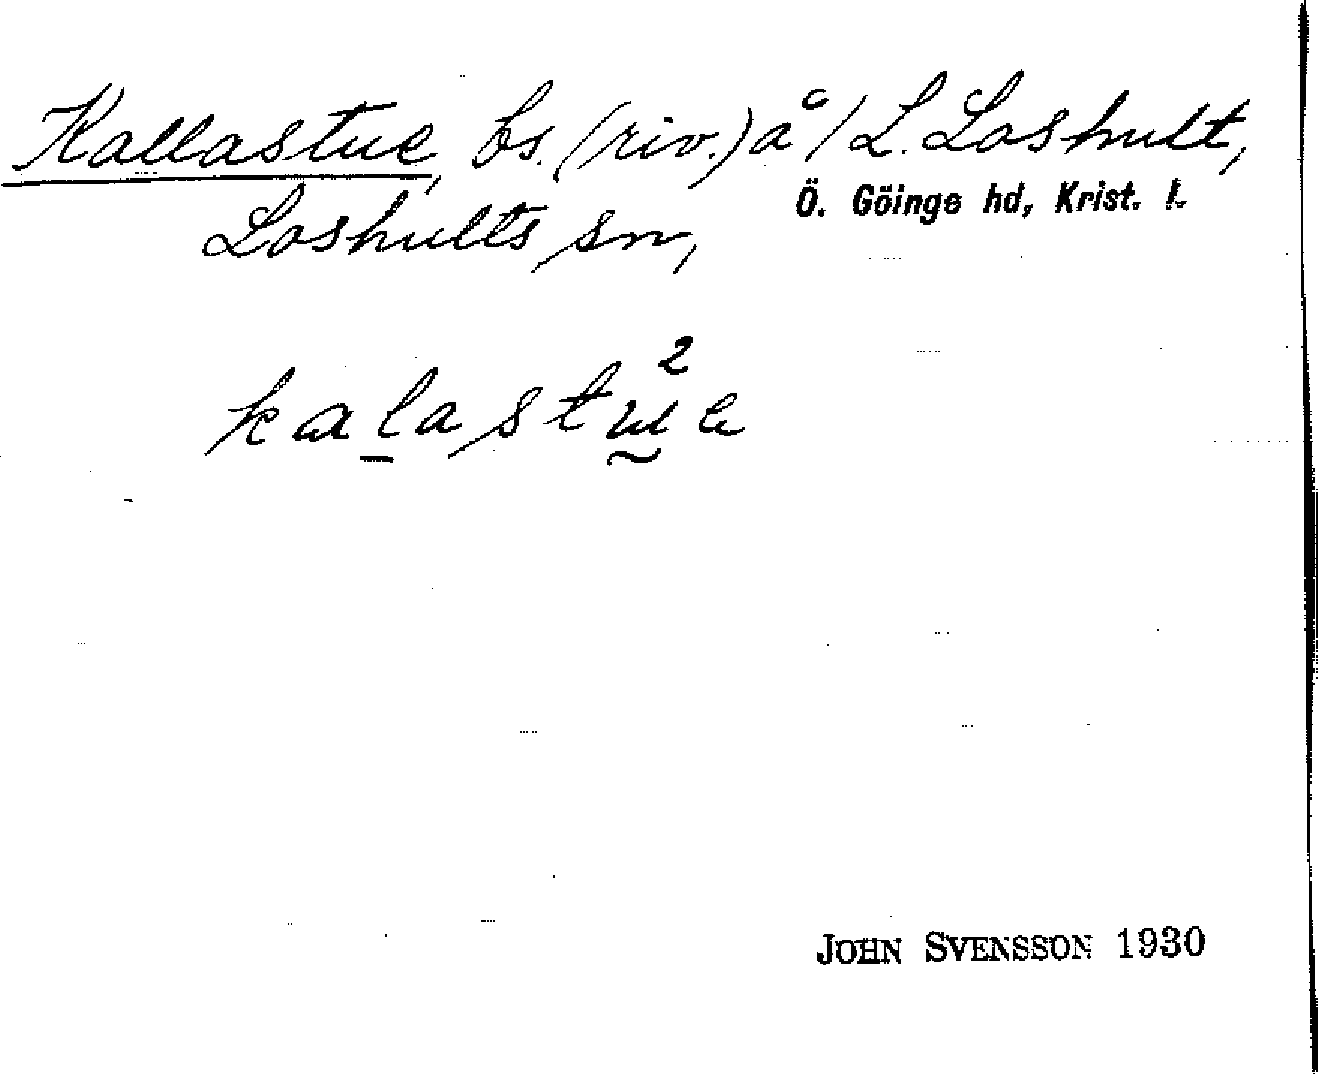 Kallastue, bs. (riv.) å /L. Loshult,
Ö. Göinge hd, Krist. l.
Loshults sn,
kalastu²e
JOHN SVENSSON 1930